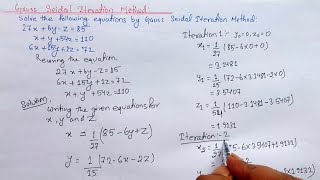 Gauss Seidal Iteration Method:
Solve the following equations by Gauss Seidal Iteration Method:
27x+6y-z=85
x+y+54z=110
6x+15y+2z=72
Reusing the equation
27x+6y-z=85
6x+15y+2z=72
x+y+54z=110
Solution,
Writing the given equations for
x, y and z
x = 1/27 (85-6y+z)
y = 1/15 (72-6x-2z)
Iteration 1:- y₀=0, z₀=0
x₁ = 1/27 (85-6x0+0)
= 3.1481
= 3.5407
z₁ = 1/54 (110-3.1481-3.5407)
= 1.9131
Iteration:-2